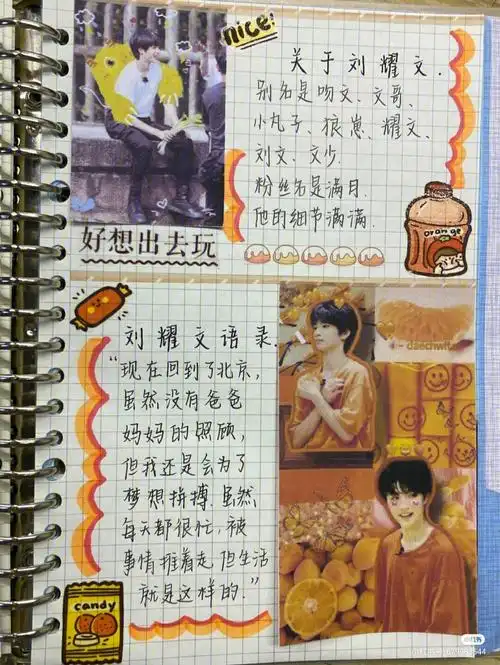 nice!
关于刘耀文.
别名是吻文、文哥、
小丸子、狼崽、耀文、
刘文、文少.
粉丝名是满月.
他的细节满满.
orange
好想出去玩
刘耀文语录.
“现在回到了北京，
虽然没有爸爸
妈妈的照顾，
但我还是会为了
梦想拼搏.虽然
每天都很忙，被
事情推着走.但生活
就是这样的.”
daechwita
candy
小红书